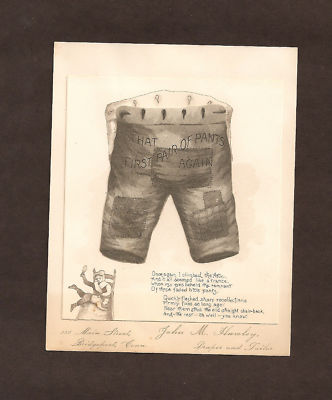 THAT
PAIR OF PANTS
FIRST
AGAIN
Once again I climbed, the Attic,
And it all seemed like a trance,
when my eyes beheld the remnant
Of those faded little pants.
Quickly flashed sharp recollections
from so long ago:
Near them stood the old straight chair-back,
And- the rest- oh well- you know!
Main Street,
Bridgeport, Conn.
John M.
Draper and Tailor